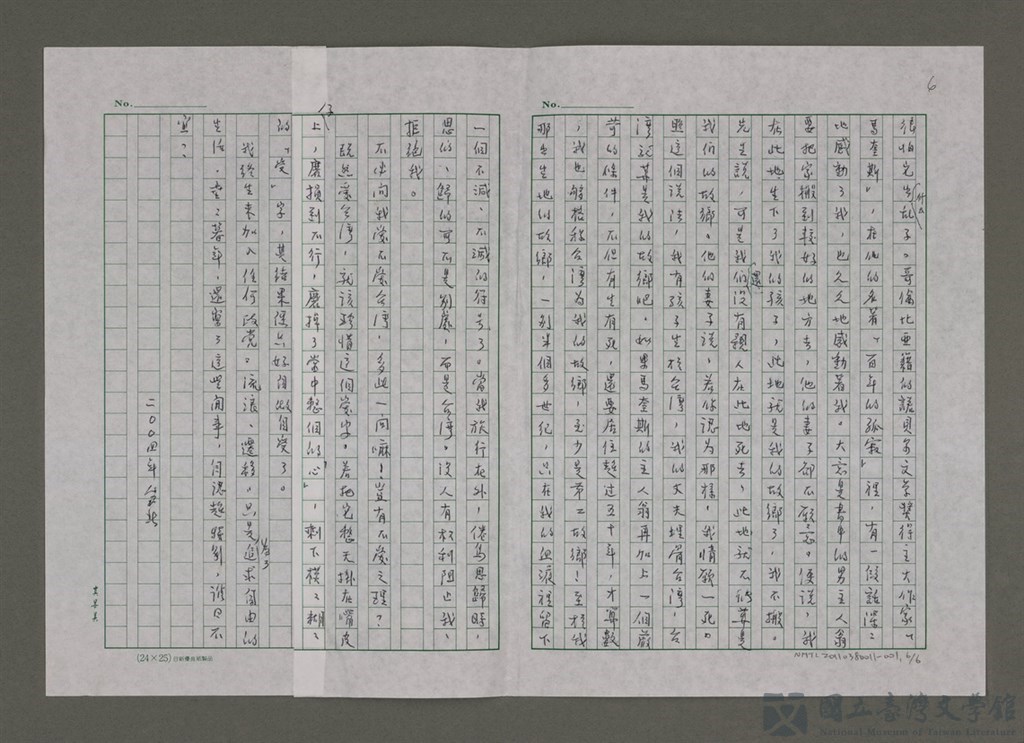 6
No.
很怕兄弟鬩子。哥倫比亞籍的諾貝爾文學獎得主大作家「
馬奎斯」，在他的名著「百年的孤寂」裡，有一段話深深
地感動了我，也久久地感動著我。大意是書中的男主人翁
要把家搬到較好的地方去，他的妻子卻不願意。便說，我
在此地生下了我的孩子，此地就是我的故鄉了，我不搬。
先生說，可是我們還沒有親人在此地死去，此地就不能算是
我們的故鄉。他的妻子說，若你認為那樣，我情願一死。
照這個說法，我有孩子生於台灣，我的丈夫埋骨台灣，台
灣就算是我的故鄉吧。如果馬奎斯的主人翁再加上一個嚴
苛的條件，不但有生有死，還要居住超過五十年，才算數
，我也夠格稱台灣為我的故鄉，至少是第二故鄉！至於我
那出生地的故鄉，一別半個多世紀，只在我的血液裡留下
No.
一個不滅、不滅的符號了。當我旅行在外，倦鳥思歸時，
思的、歸的可不是別處，而是台灣。沒人有權利阻止我、
拒絕我。
不必問我愛不愛台灣，多此一問嘛！豈有不愛之理？
既然愛台灣，就該珍惜這個愛字。若把它整天掛在嘴皮
仔上，磨損到不行，磨掉了當中整個的「心」，剩下模模糊糊
的「受」字，其結果限只好自做自受了。
我終生未加入任何政黨。流浪、遷移。只是為了追求自由的
生活。垂垂暮年，還寫了這些閒事，自認超勝郭，誰曰不
宜？
二〇〇四年
(24×25)
NMTL20110380011-001, 6/6
國立臺灣文學館
National Museum of Taiwan Literature